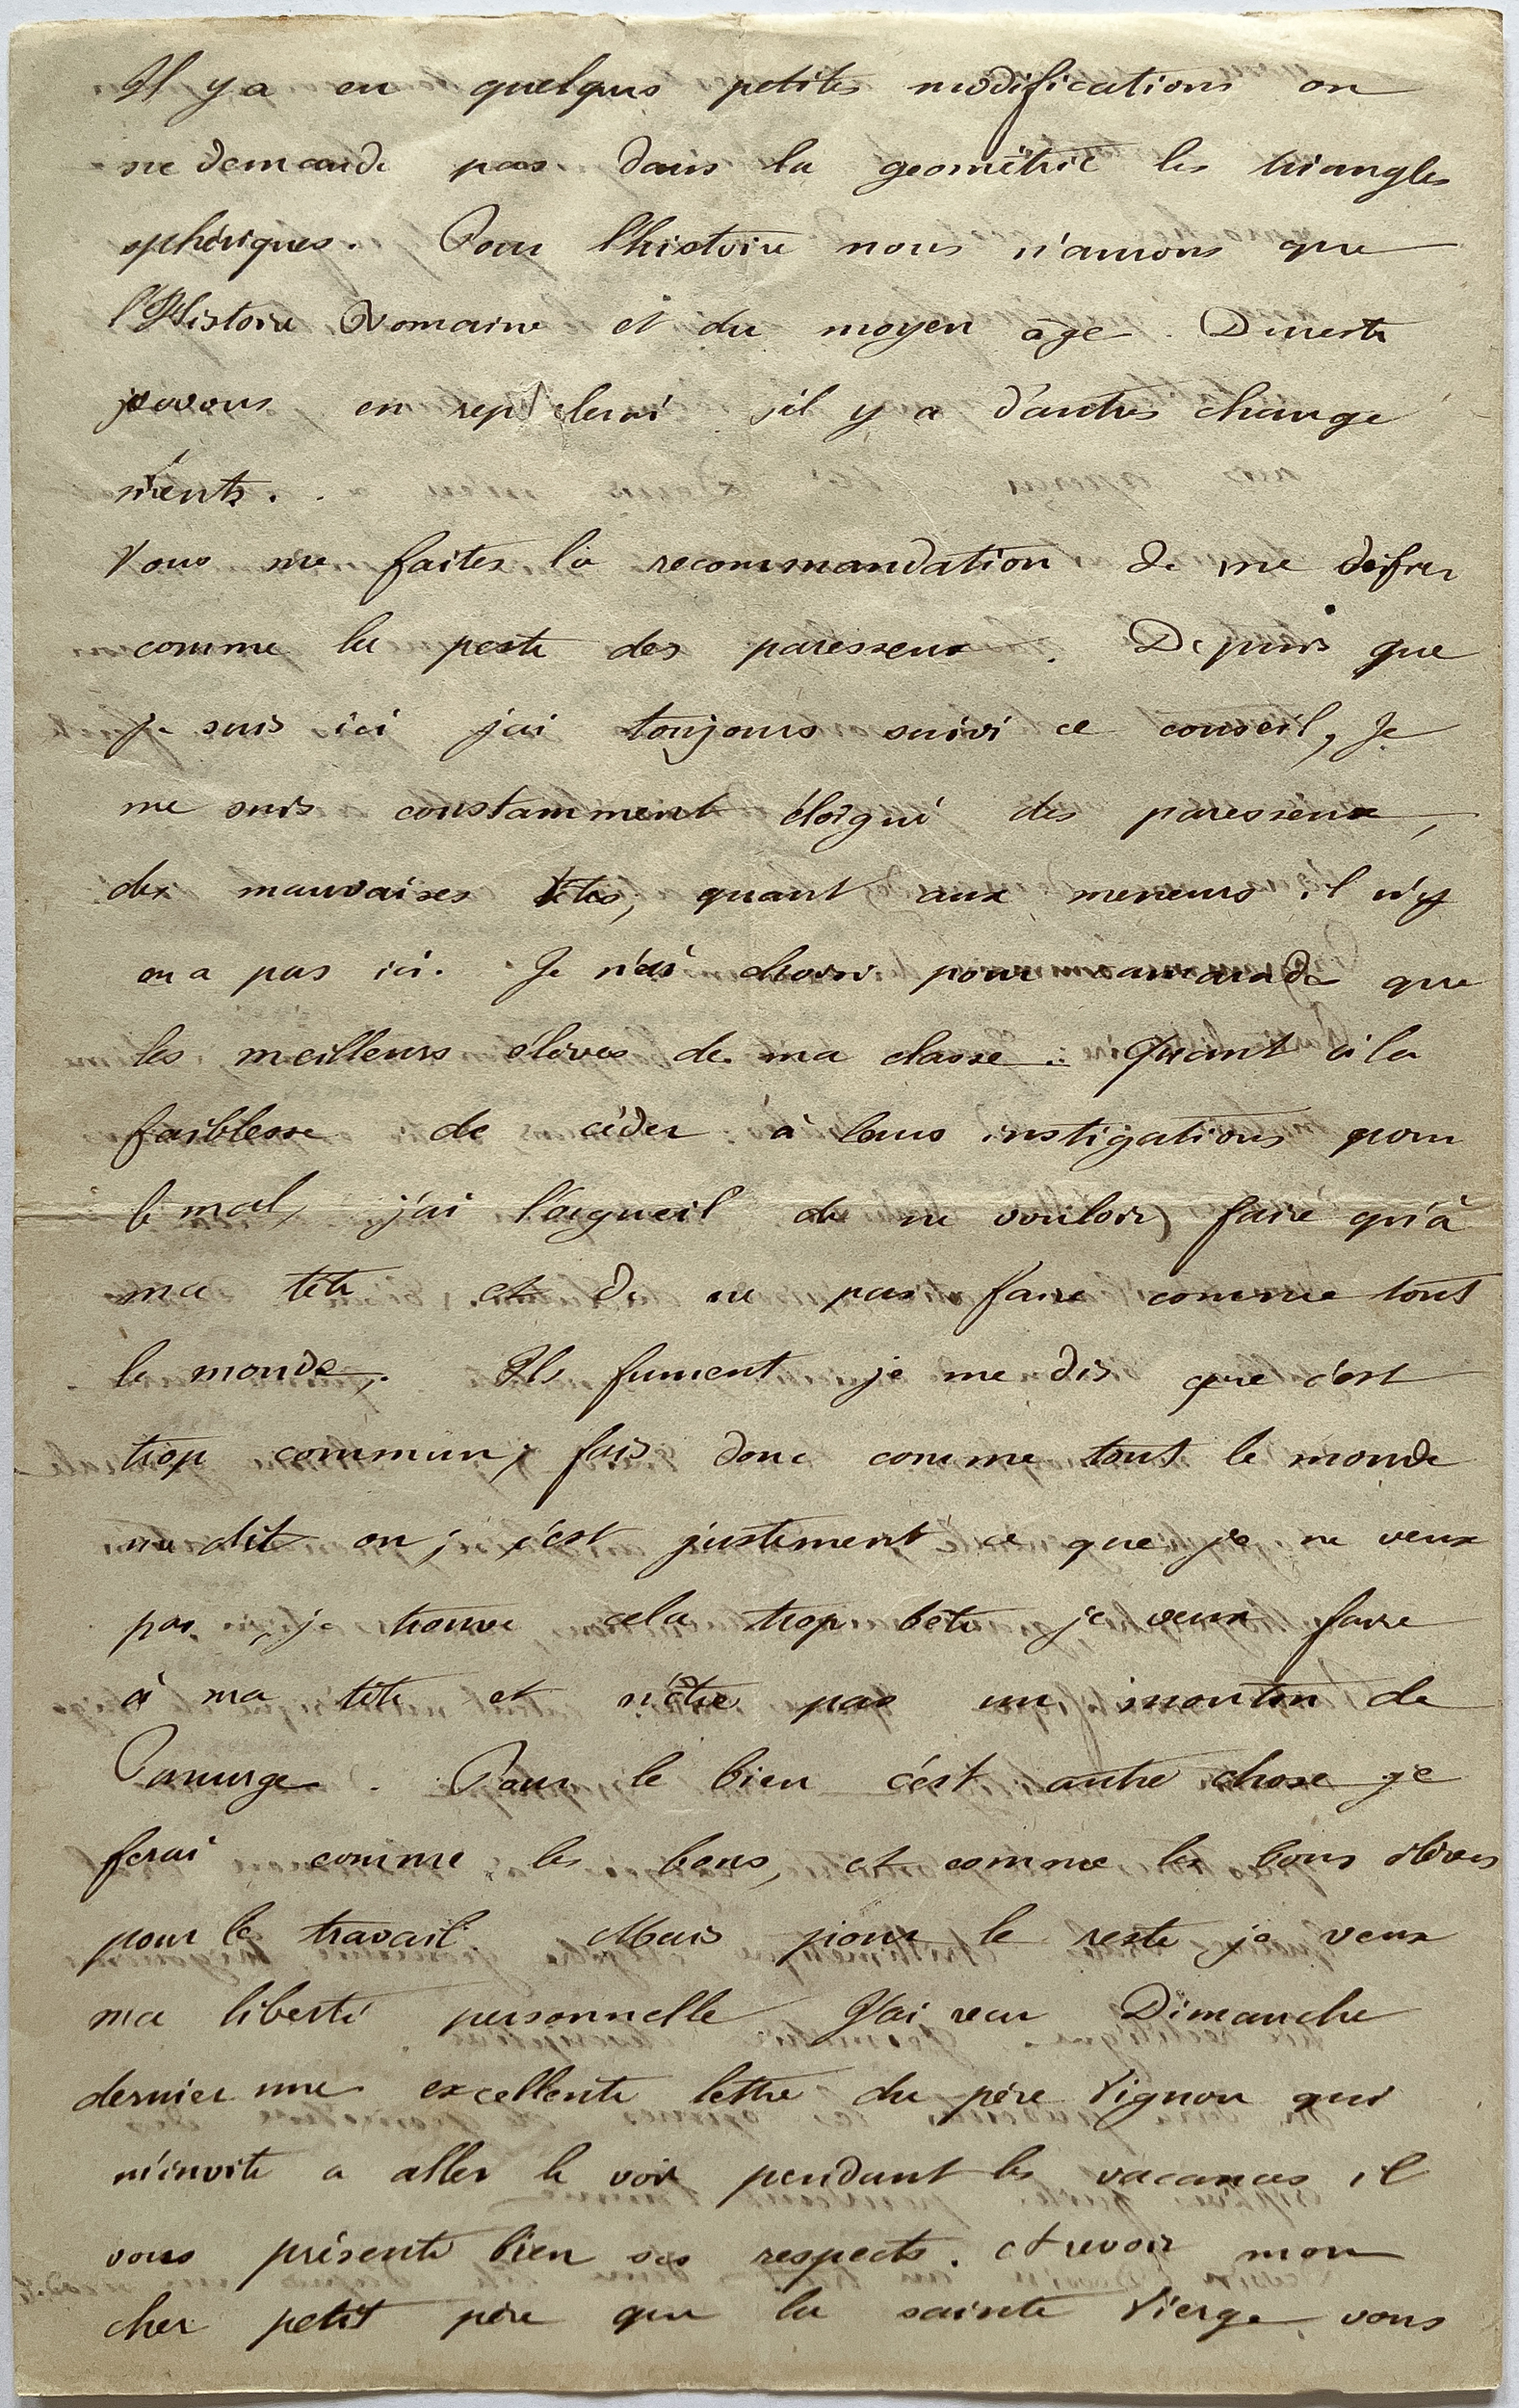 Il y a eu quelques petites modifications on
ne demande pas dans la geométrie les triangles
sphériques. Pour l'histoire nous n'aurons que
l'Histoire Romaine et du moyen âge. Dureste
en il y a d'autres change
ments.
Vous me faites la recommandation de me défier
comme la peste des paresseux. Depuis que
je suis ici j'ai toujours suivi ce conseil, Je
me suis constamment éloigné des paresseux,
des mauvaises têtes, quant aux meneurs il n'y
en a pas ici. Je n'ai choisi pour camarade que
les meilleurs élèves de ma classe. Quant à la
faiblesse de céder à leurs instigations pour
le mal, j'ai l'orgueil de ne vouloir faire qu'à
ma tête et de ne pas faire comme tout
le monde, Ils fument je me dis que c'est
trop commun, fais donc comme tout le monde
me dit on ; c'est justement ce que je ne veux
pas, je trouve cela trop bête je veux faire
à ma tête et n'être pas un mouton de
Panurge. Pour le bien c'est autre chose je
ferai comme les bons, et comme les bons élèves
pour le travail. Mais pour le reste je veux
ma liberté personnelle J'ai reçu Dimanche
dernier une excellente lettre du père Vignon qui
m'invite a aller le voir pendant les vacances il
vous présente bien ses respects. Au revoir mon
cher petit père que la sainte Vierge vous